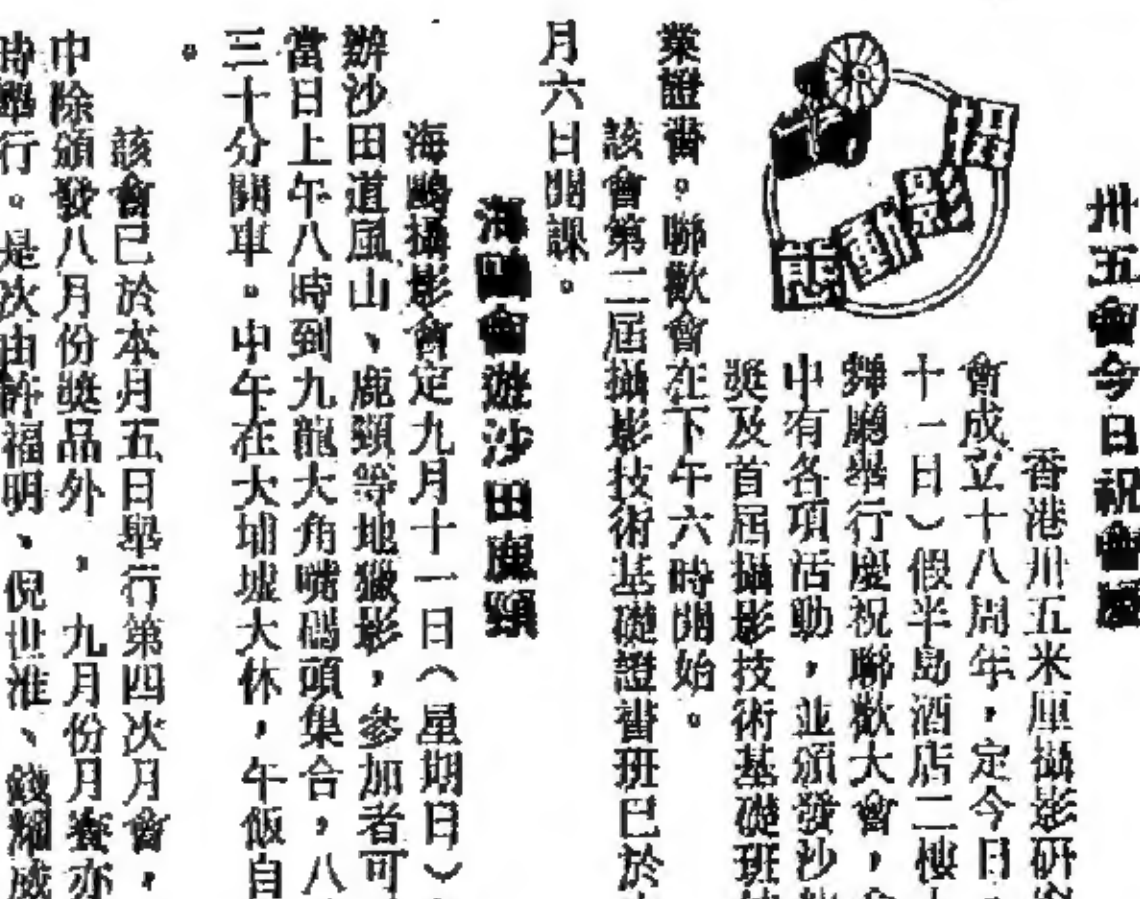 卅五會今日祝會慶
攝影動態
香港卅五米厘攝影研
會成立十八周年，定今日
十一日）假半島酒店二樓
舞廳舉行慶祝聯歡大會，
中有各項活動，並頒發沙
獎及首屆攝影技術基礎班
業證書。聯歡會在下午六時開始。
該會第二屆攝影技術基礎證書班已於
月六日開課。
海鷗會遊沙田鹿頸
海鷗攝影會定九月十一日（星期日）
辦沙田道風山、鹿頸等地獵影，參加者可
當日上午八時到九龍大角嘴碼頭集合，八
三十分開車。中午在大埔墟大休，午飯自
。
該會已於本月五日舉行第四次月會，
中除頒發八月份獎品外，九月份月賽亦
時舉行。是次由許福明、倪世淮、錢耀威